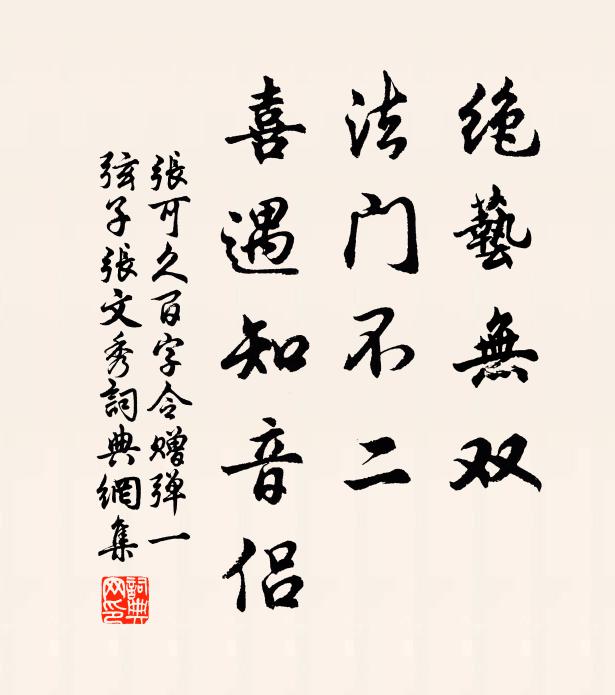 绝藝無双
法门不二
喜遇知音侣
張可久百字令赠弹一
弦子張文秀詞典網集
詞典网印